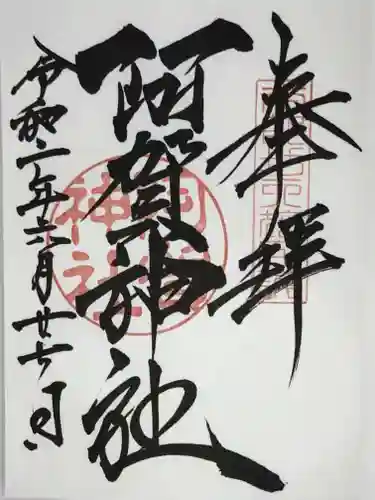 奉拝
阿賀神社
令和二年六月廿七日
阿賀神社